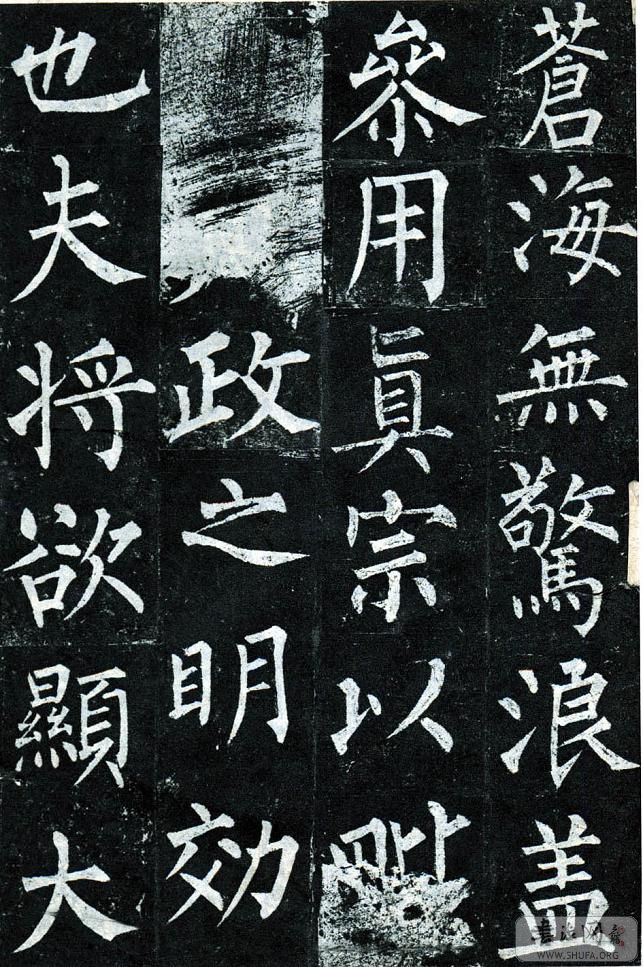 蒼海無驚浪盖
參用真宗以毗
政之明効
也夫将欲顯大
WWW.SHUFA.ORG